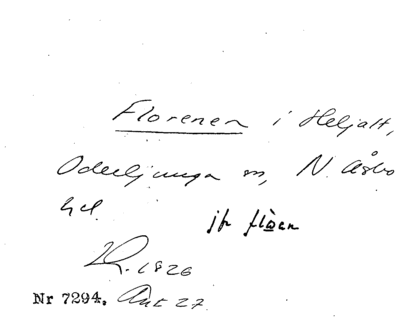 Florenen i Heljalt,
Oderljunga sn, N. Åsbo
hd.
jfr flòen
1826
Nr 7294. Ant 27